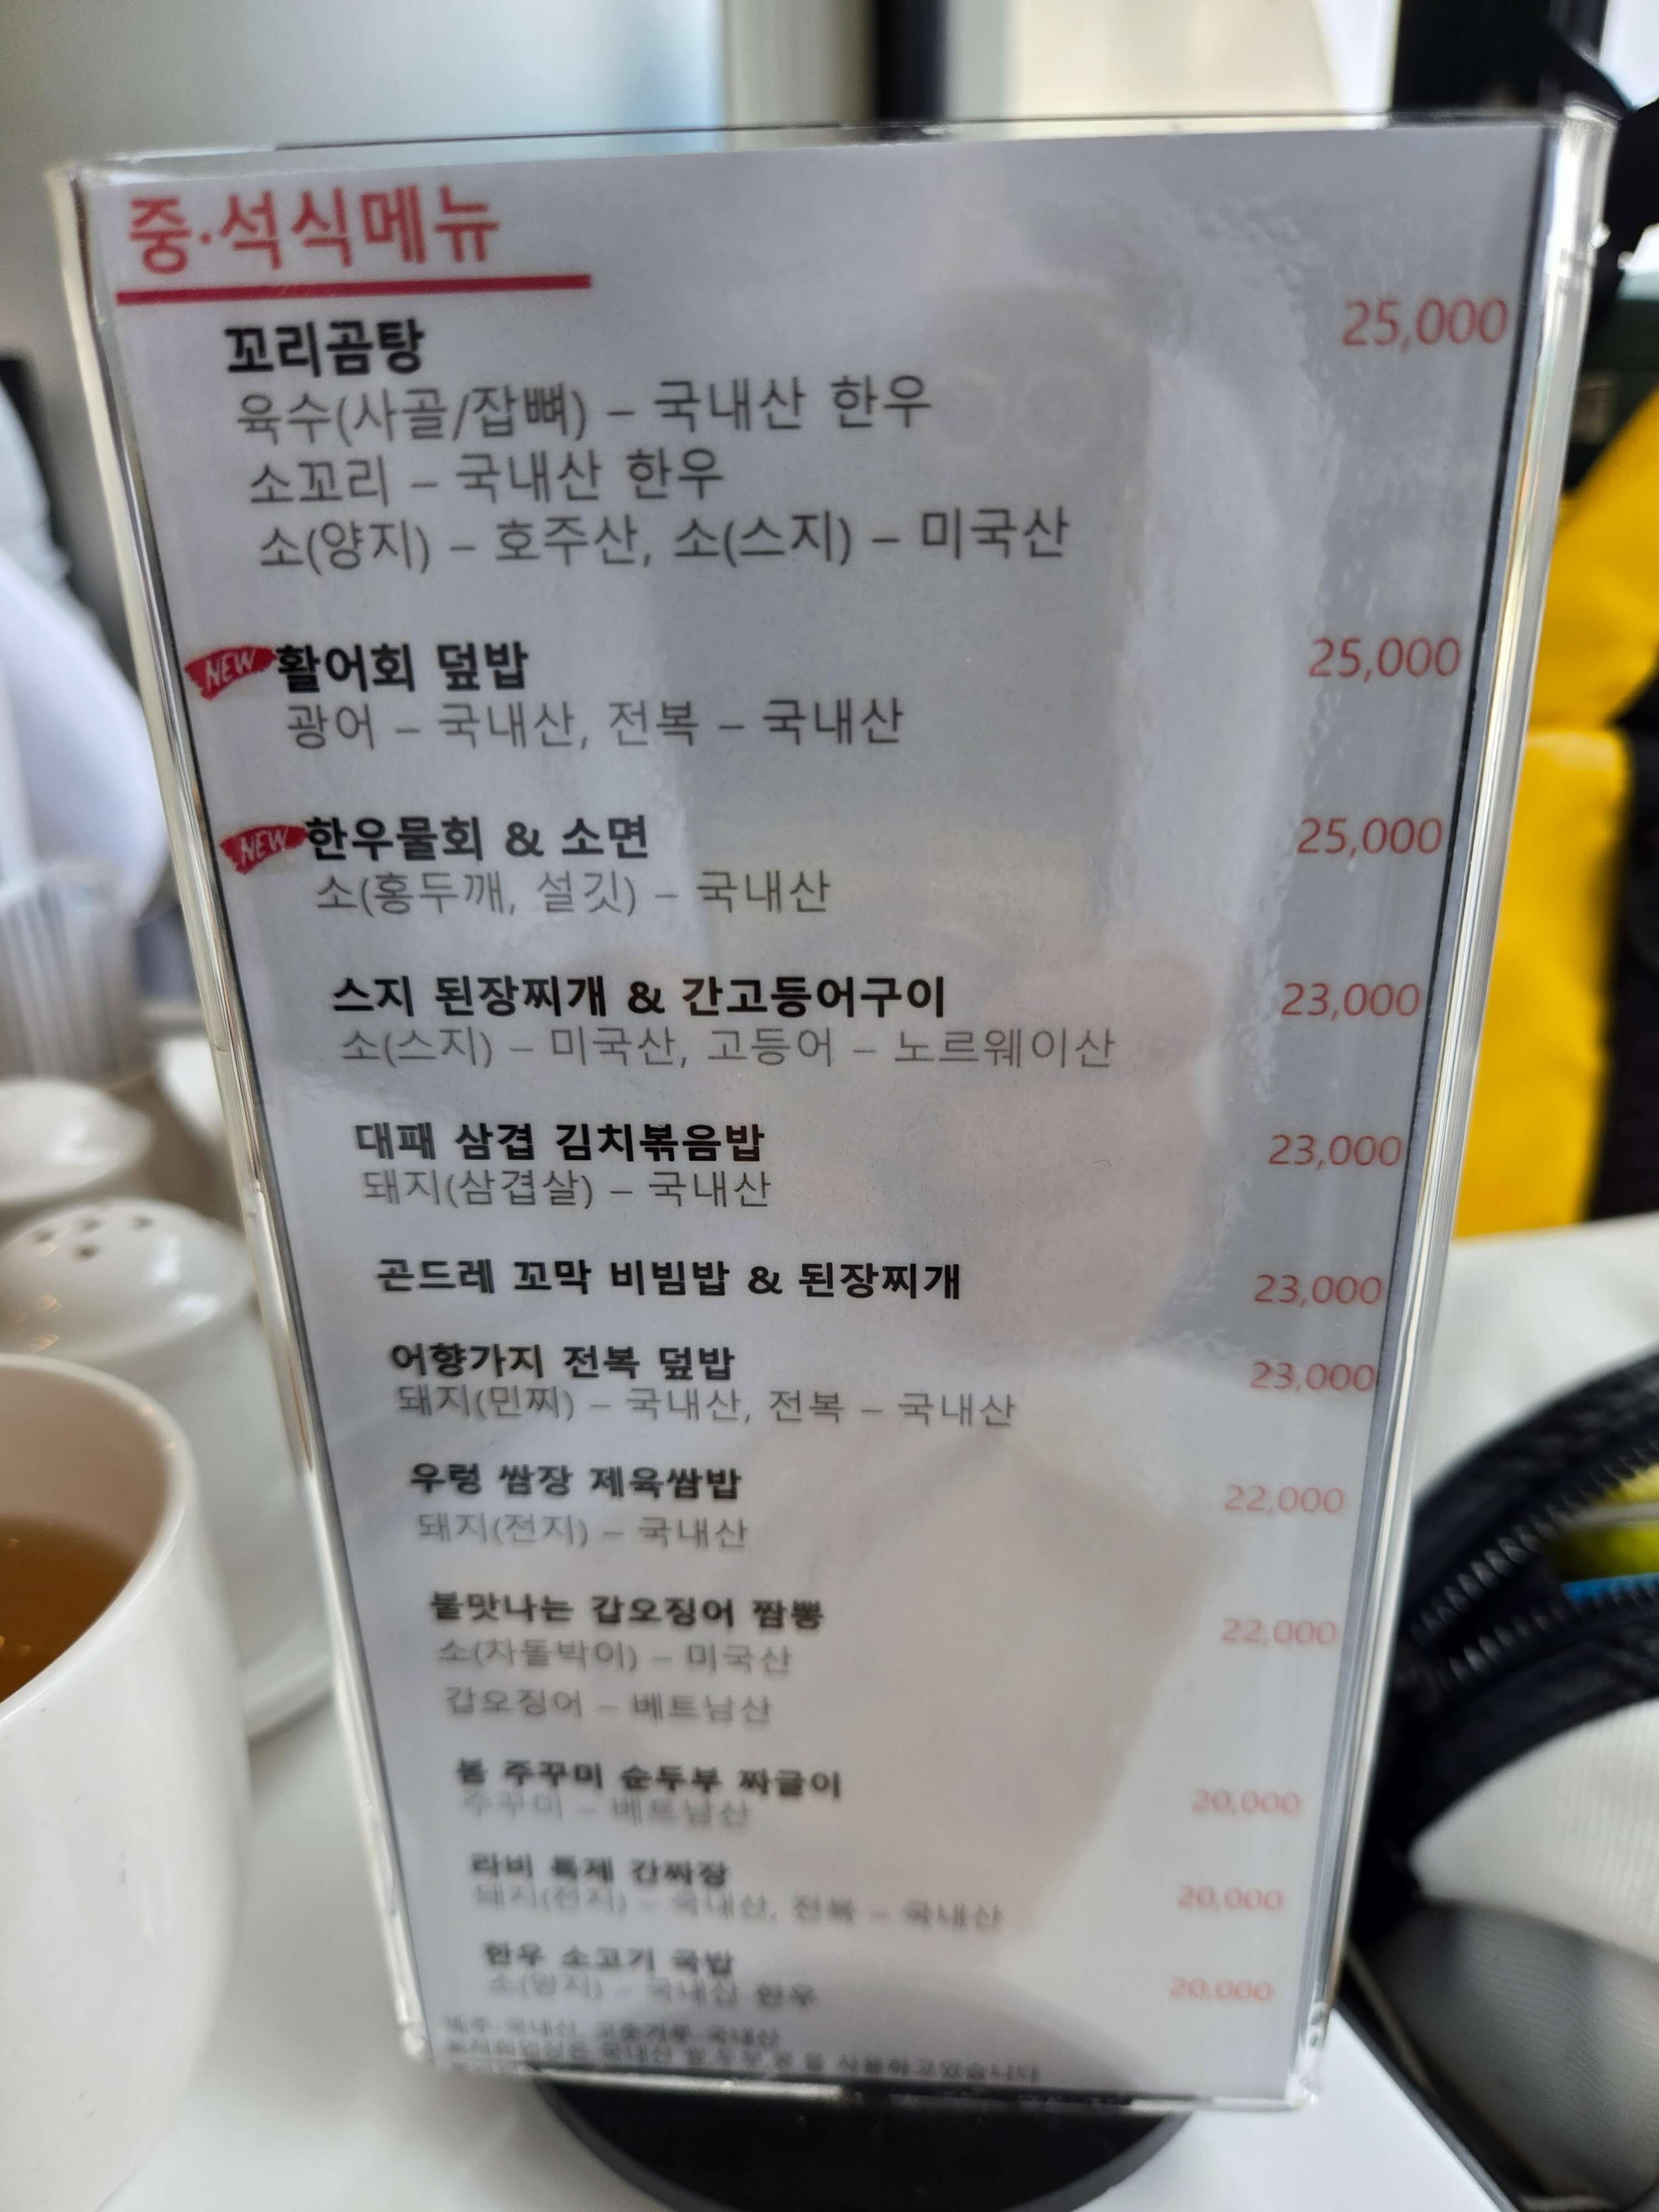 중·석식메뉴
꼬리곰탕 25,000
육수(사골/잡뼈) – 국내산 한우
소꼬리 – 국내산 한우
소(양지) – 호주산, 소(스지) – 미국산
NEW 활어회 덮밥 25,000
광어 – 국내산, 전복 – 국내산
NEW 한우물회 & 소면 25,000
소(홍두깨, 설깃) – 국내산
스지 된장찌개 & 간고등어구이 23,000
소(스지) – 미국산, 고등어 – 노르웨이산
대패 삼겹 김치볶음밥 23,000
돼지(삼겹살) – 국내산
곤드레 꼬막 비빔밥 & 된장찌개 23,000
어향가지 전복 덮밥 23,000
돼지(민찌) – 국내산, 전복 – 국내산
우렁 쌈장 제육쌈밥 22,000
돼지(전지) – 국내산
불맛나는 갑오징어 짬뽕 22,000
소(차돌박이) – 미국산
갑오징어 – 베트남산
봄 주꾸미 순두부 짜글이 20,000
주꾸미 – 베트남산
라비 특제 간짜장 20,000
돼지(전지) – 국내산, 전복 – 국내산
한우 소고기 국밥 20,000
소(양지) – 국내산 한우
국내산, 고춧가루-국내산
국내산 쌀,두부,콩 을 사용하고있습니다